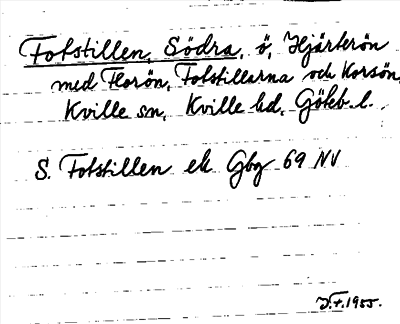 Fotstillen, Södra, ö, Hjärterön
med Florön, Fotstillarna och Korsön,
Kville sn, Kville hd, Göteb. l.
S. Fotstillen ek Gbg 69 NV
1955.